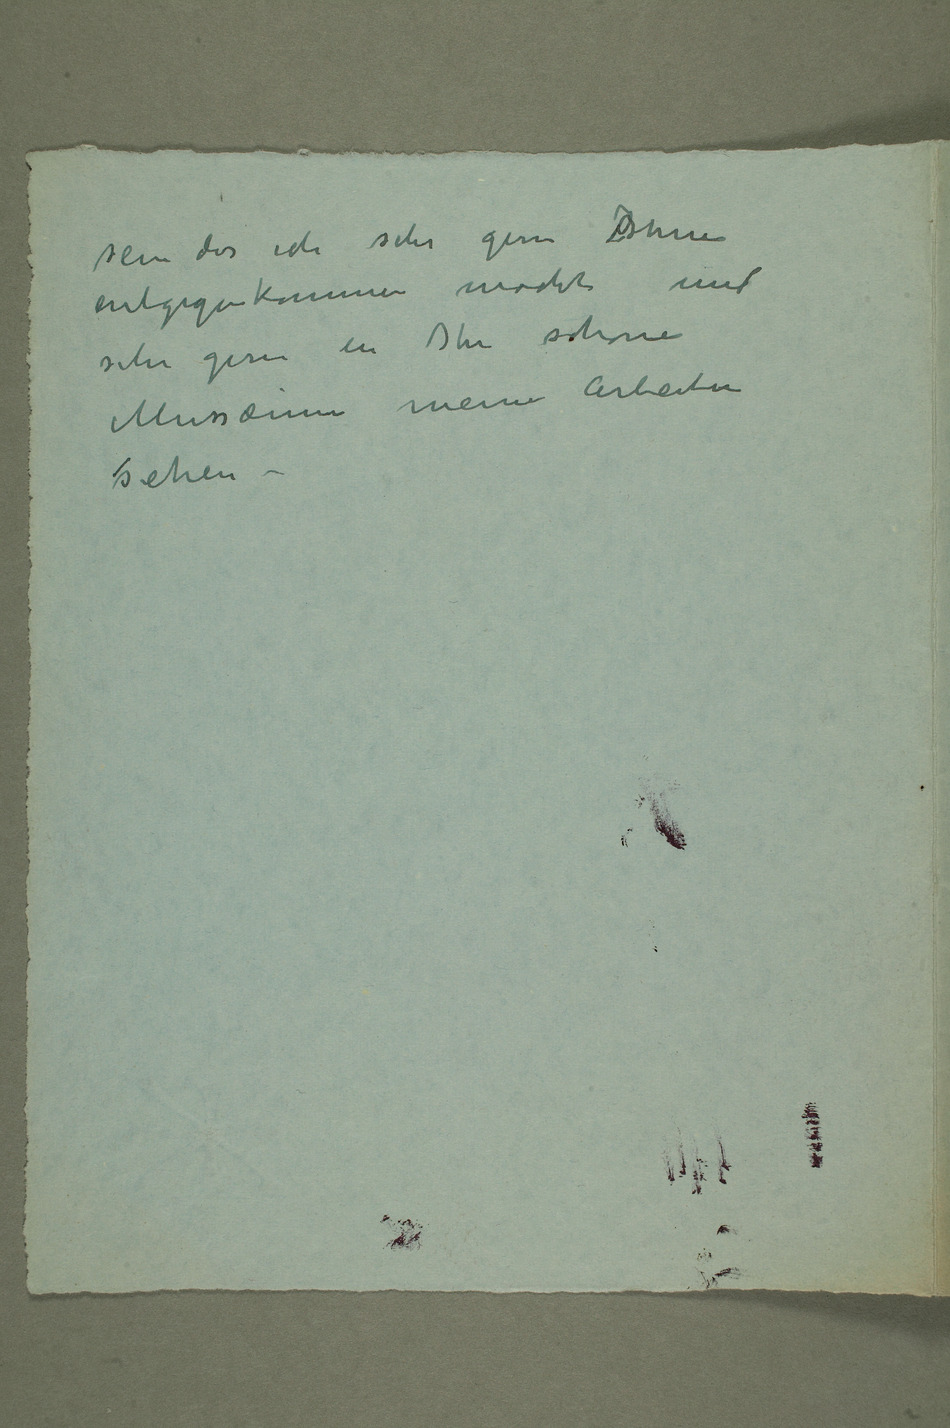 sein das ich sehr gern Ihnen
entgegenkommen möcht und
sehr gern in Ihr schöne
Mussæum meine Arbeiten
sehen –